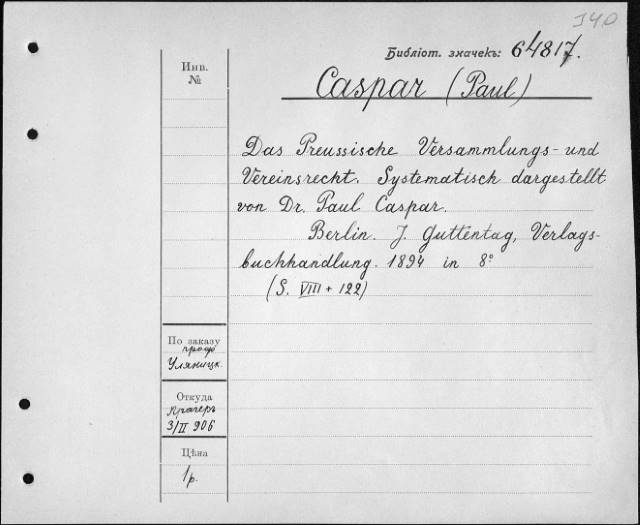 340
Библіот. значекъ: 64817.
Инв.
№
Caspar (Paul)
Das Preussische Versammlungs- und
Vereinsrecht. Systematisch dargestellt
von Dr. Paul Caspar.
Berlin. J. Guttentag, Verlags-
buchhandlung. 1894 in 8°
(S. VIII + 122)
По заказу
проф
Уляницк.
Откуда
Крагеръ
3/II 906
Цѣна
1 р.